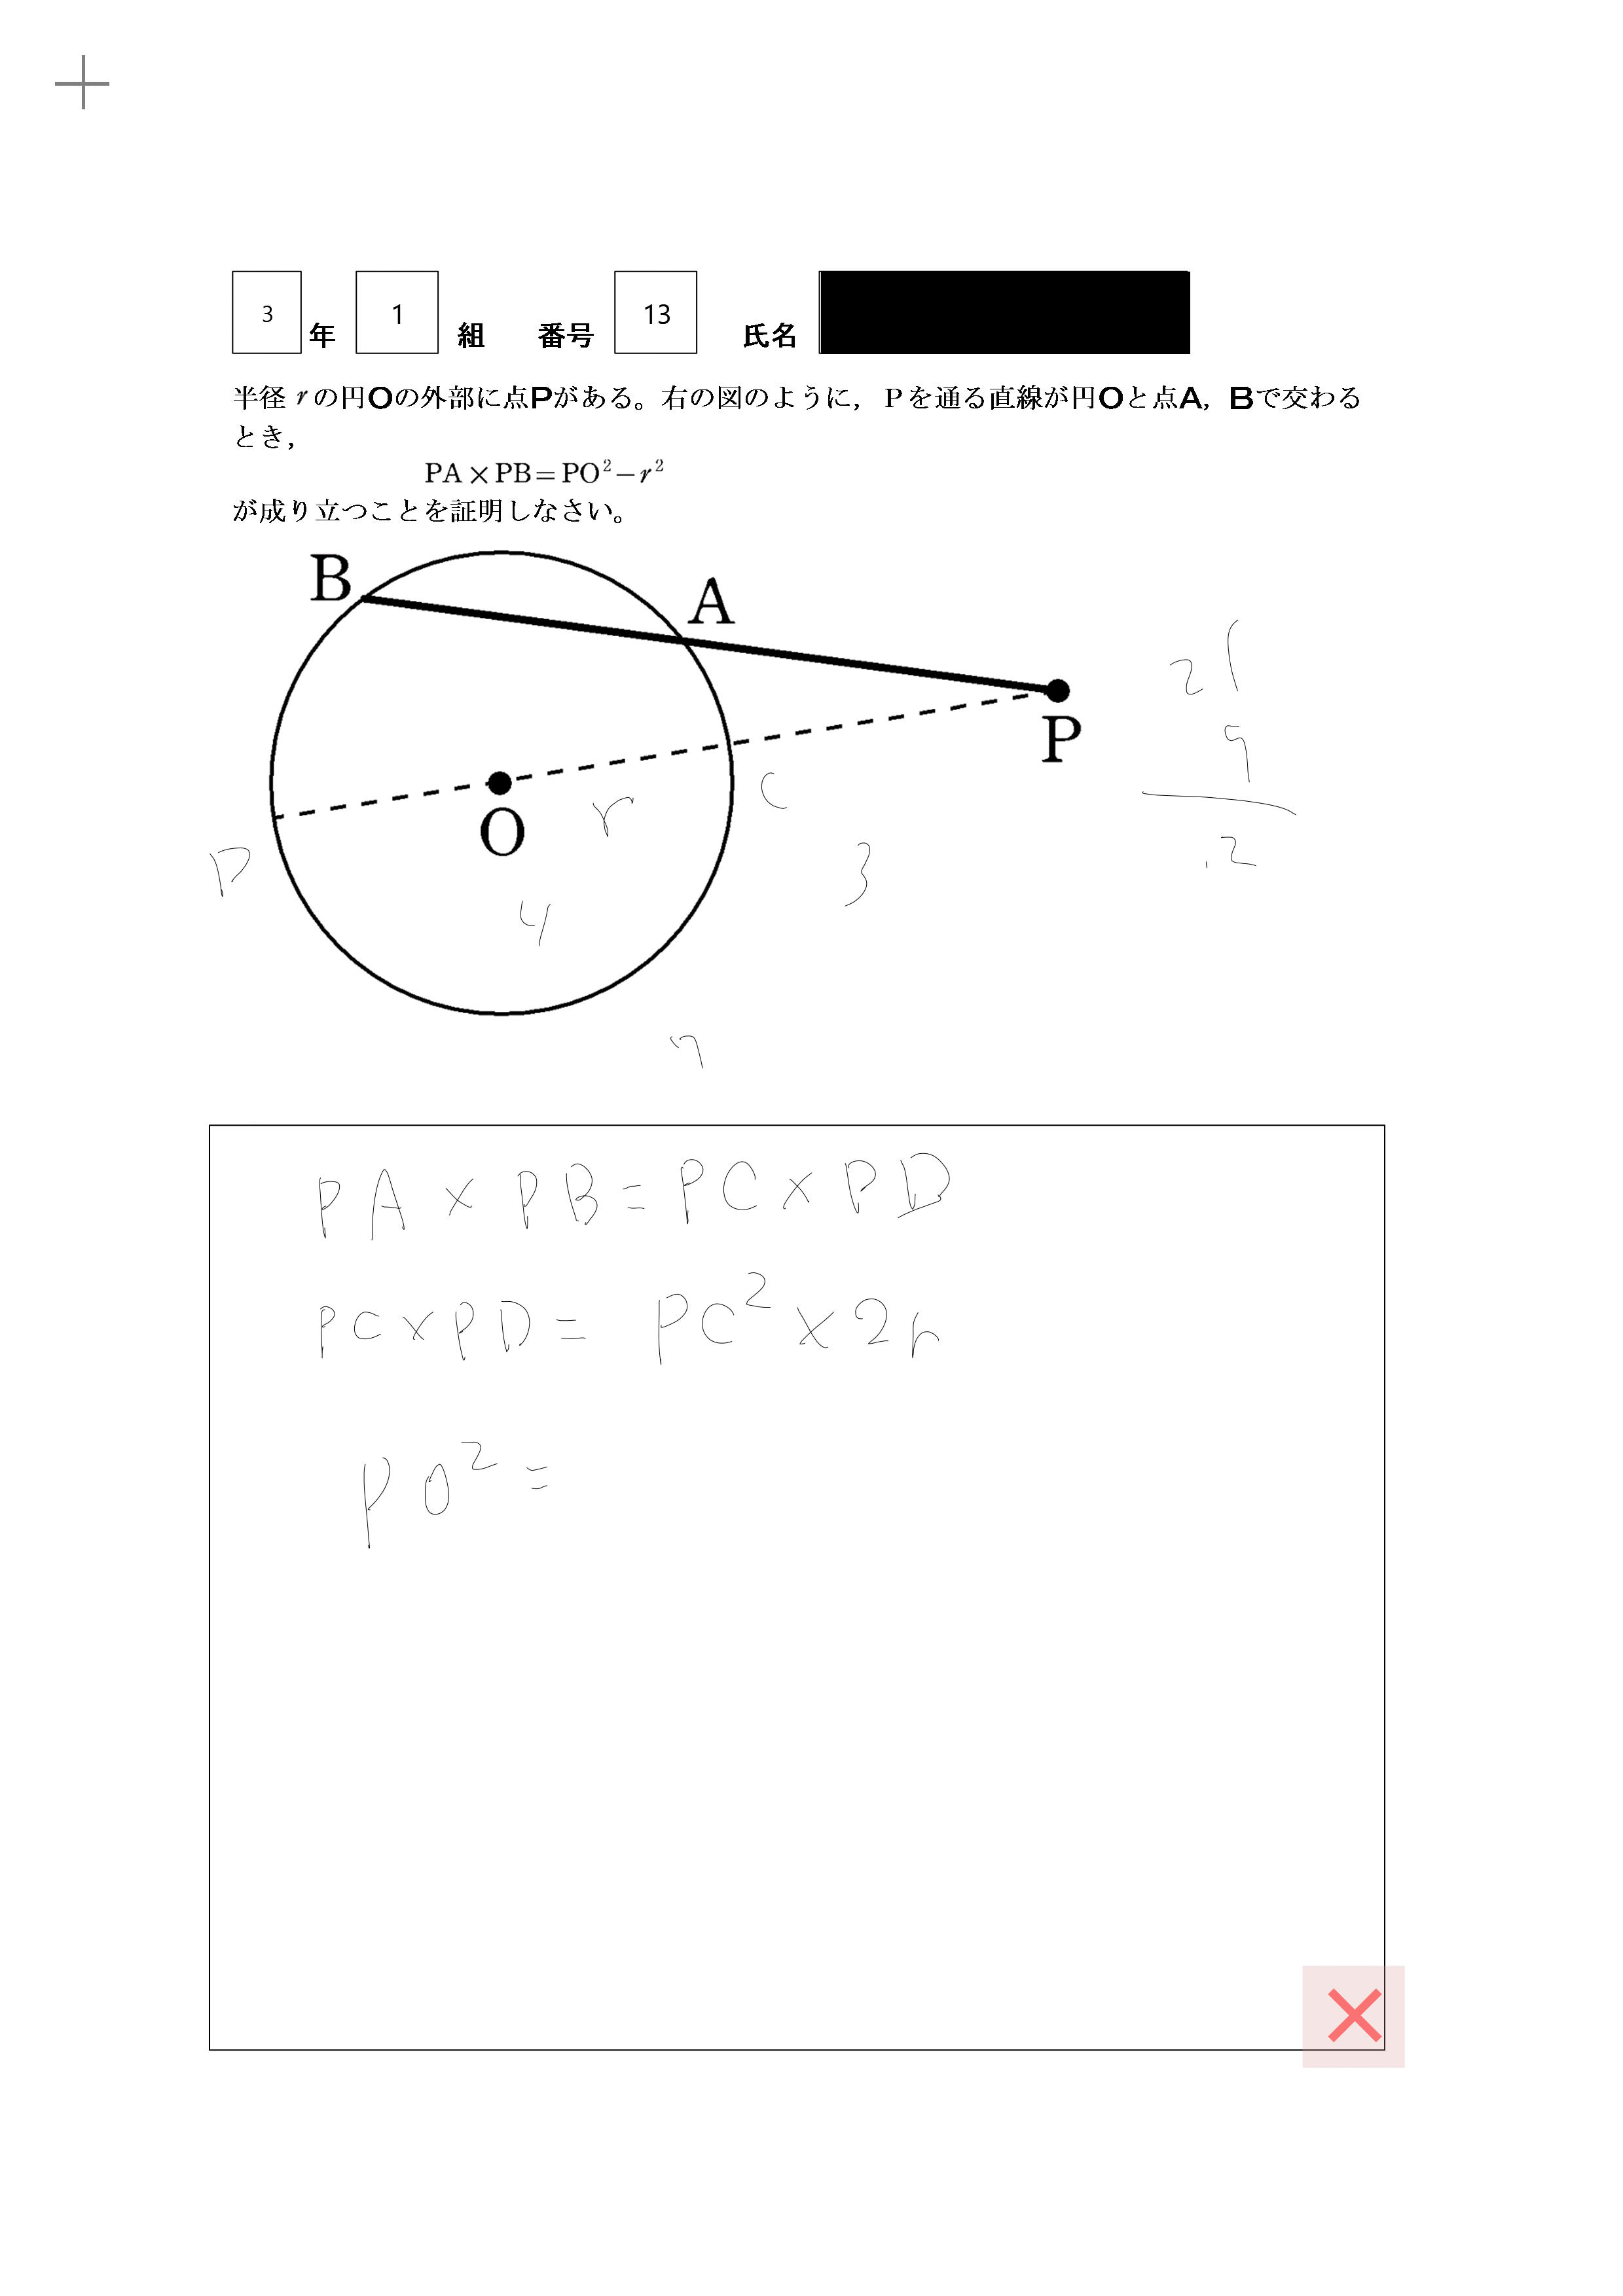 3 年 1 組 番号 13 氏名
半径 r の円Oの外部に点Pがある。右の図のように，Pを通る直線が円Oと点A，Bで交わる
とき，
PA×PB=PO²−r²
が成り立つことを証明しなさい。
B
A
P
O
r
C
D
4
3
7
21
9
12
PA × PB = PC × PD
PC × PD = PC² × 2r
PO² =